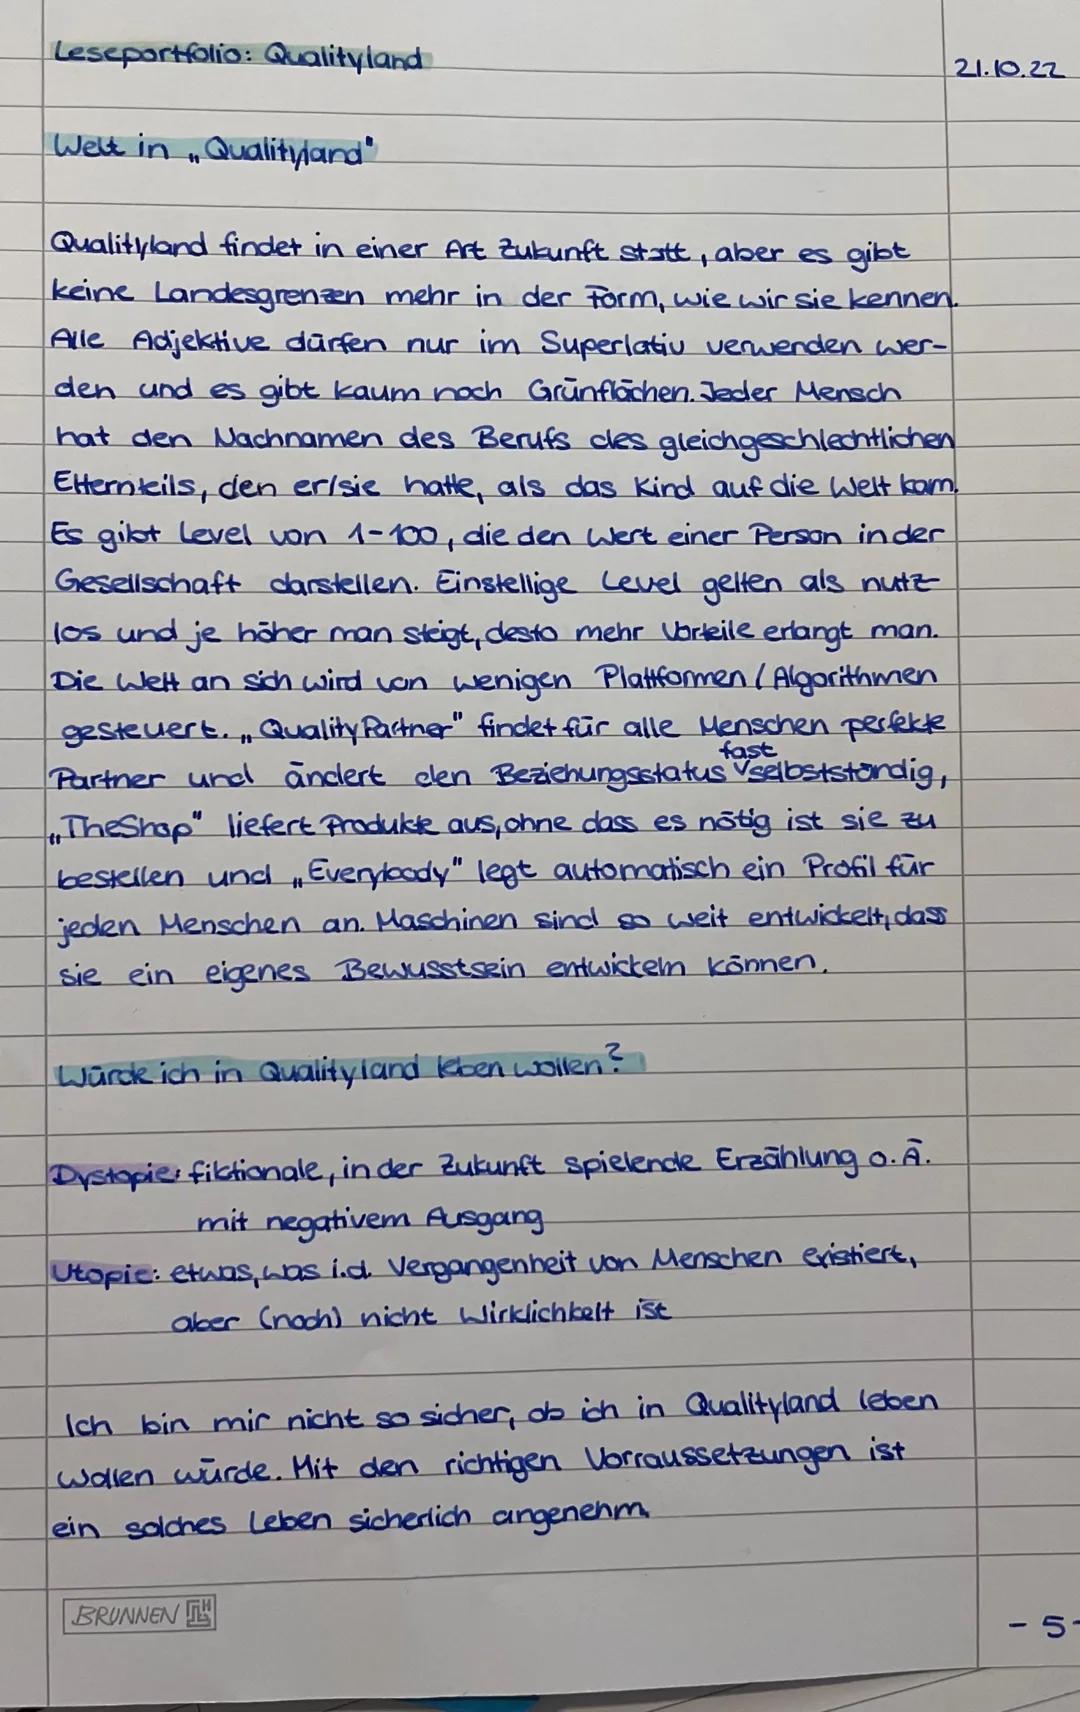 Leseportfolio: Qualityland
21.10.22
Welt in „Qualityland"
Qualityland findet in einer Art Zukunft statt, aber es gibt
keine Landesgrenzen mehr in der Form, wie wir sie kennen.
Alle Adjektive dürfen nur im Superlativ verwenden wer-
den und es gibt kaum noch Grünflächen. Jeder Mensch
hat den Nachnamen des Berufs des gleichgeschlechtlichen
Elternteils, den er/sie hatte, als das Kind auf die Welt kam.
Es gibt Level von 1-100, die den Wert einer Person in der
Gesellschaft darstellen. Einstellige Level gelten als nutz-
los und je höher man steigt, desto mehr Vorteile erlangt man.
Die Welt an sich wird von wenigen Plattformen / Algorithmen
gesteuert. „QualityPartner" findet für alle Menschen perfekte
fast
Partner und ändert den Beziehungsstatus √selbstständig,
„TheShop" liefert Produkte aus, ohne dass es nötig ist sie zu
bestellen und „Everybody" legt automatisch ein Profil für
jeden Menschen an. Maschinen sind so weit entwickelt, dass
sie ein eigenes Bewusstsein entwickeln können.
Würde ich in Qualityland leben wollen?
Dystopie: fiktionale, in der Zukunft spielende Erzählung o.Ä.
mit negativem Ausgang
Utopie: etwas, was i.d. Vergangenheit von Menschen existiert,
aber (noch) nicht Wirklichkeit ist
Ich bin mir nicht so sicher, ob ich in Qualityland leben
wollen würde. Mit den richtigen Vorraussetzungen ist
ein solches Leben sicherlich angenehm.
BRUNNEN
- 5-